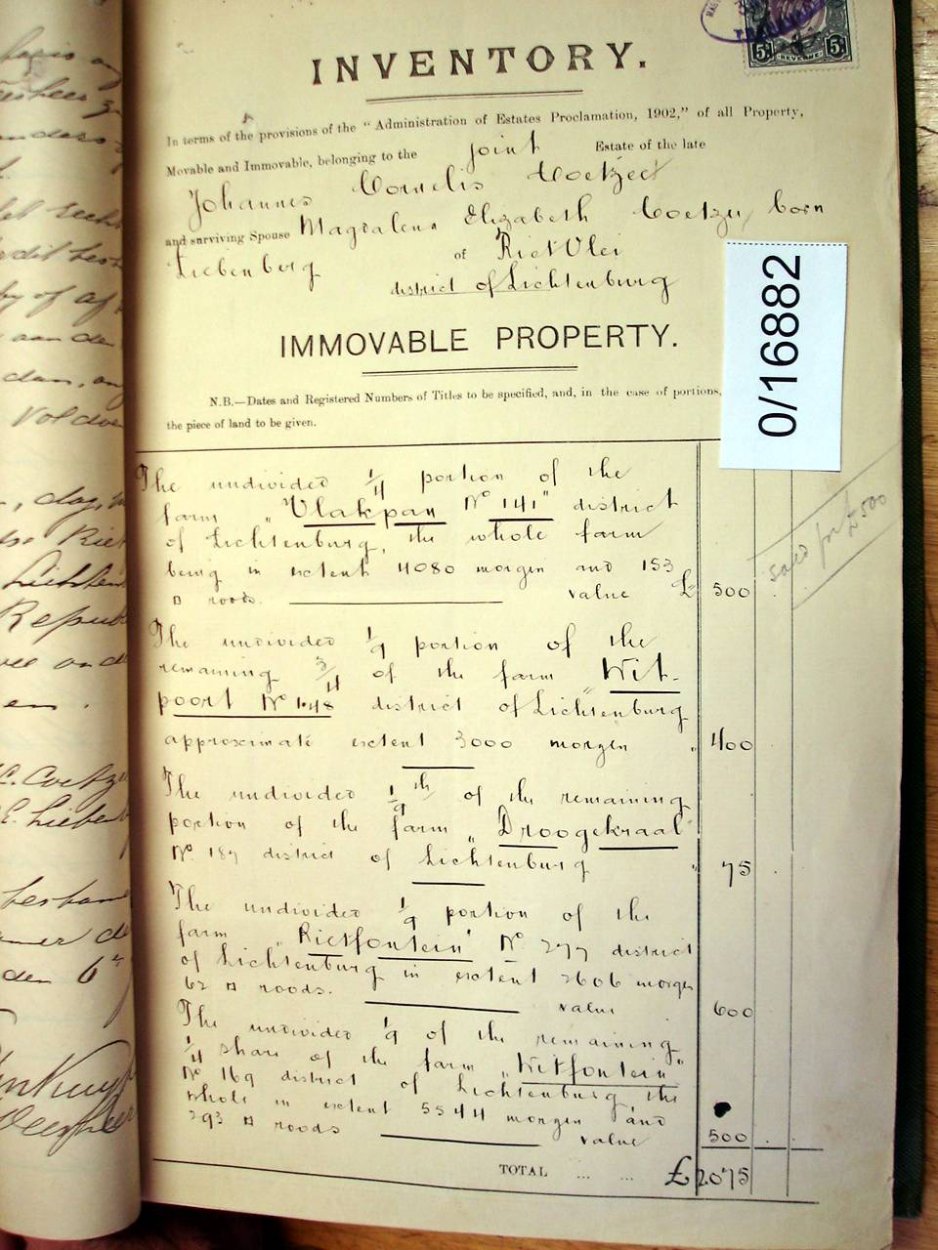 5/- REVENUE 5/-
INVENTORY.
In terms of the provisions of the "Administration of Estates Proclamation, 1902," of all Property,
Movable and Immovable, belonging to the joint Estate of the late
Johannes Cornelis Coetzee
and surviving Spouse Magdalena Elizabeth Coetzee, born
Liebenberg of RietVlei
district of Lichtenburg
0/16882
IMMOVABLE PROPERTY.
N.B.—Dates and Registered Numbers of Titles to be specified, and, in the case of portions,
the piece of land to be given.
The undivided 1/4 portion of the
farm "Vlakpan No 141" district
of Lichtenburg, the whole farm
being in extent 4080 morgen and 153
□ roods. value £ 500
sold for £500
The undivided 1/9 portion of the
remaining 3/4 of the farm "Wit-
poort No 148 district of Lichtenburg
approximate extent 3000 morgen " 400
The undivided 1/9th of the remaining
portion of the farm "Droogekraal"
No 187 district of Lichtenburg " 75
The undivided 1/9 portion of the
farm "Rietfontein" No 277 district
of Lichtenburg in extent 2606 morgen
62 □ roods. value 600
The undivided 1/9 of the remaining
1/4 share of the farm "Witfontein"
No 169 district of Lichtenburg the
whole in extent 5544 morgen and
293 □ roods value 500
TOTAL ... ... £ 2075